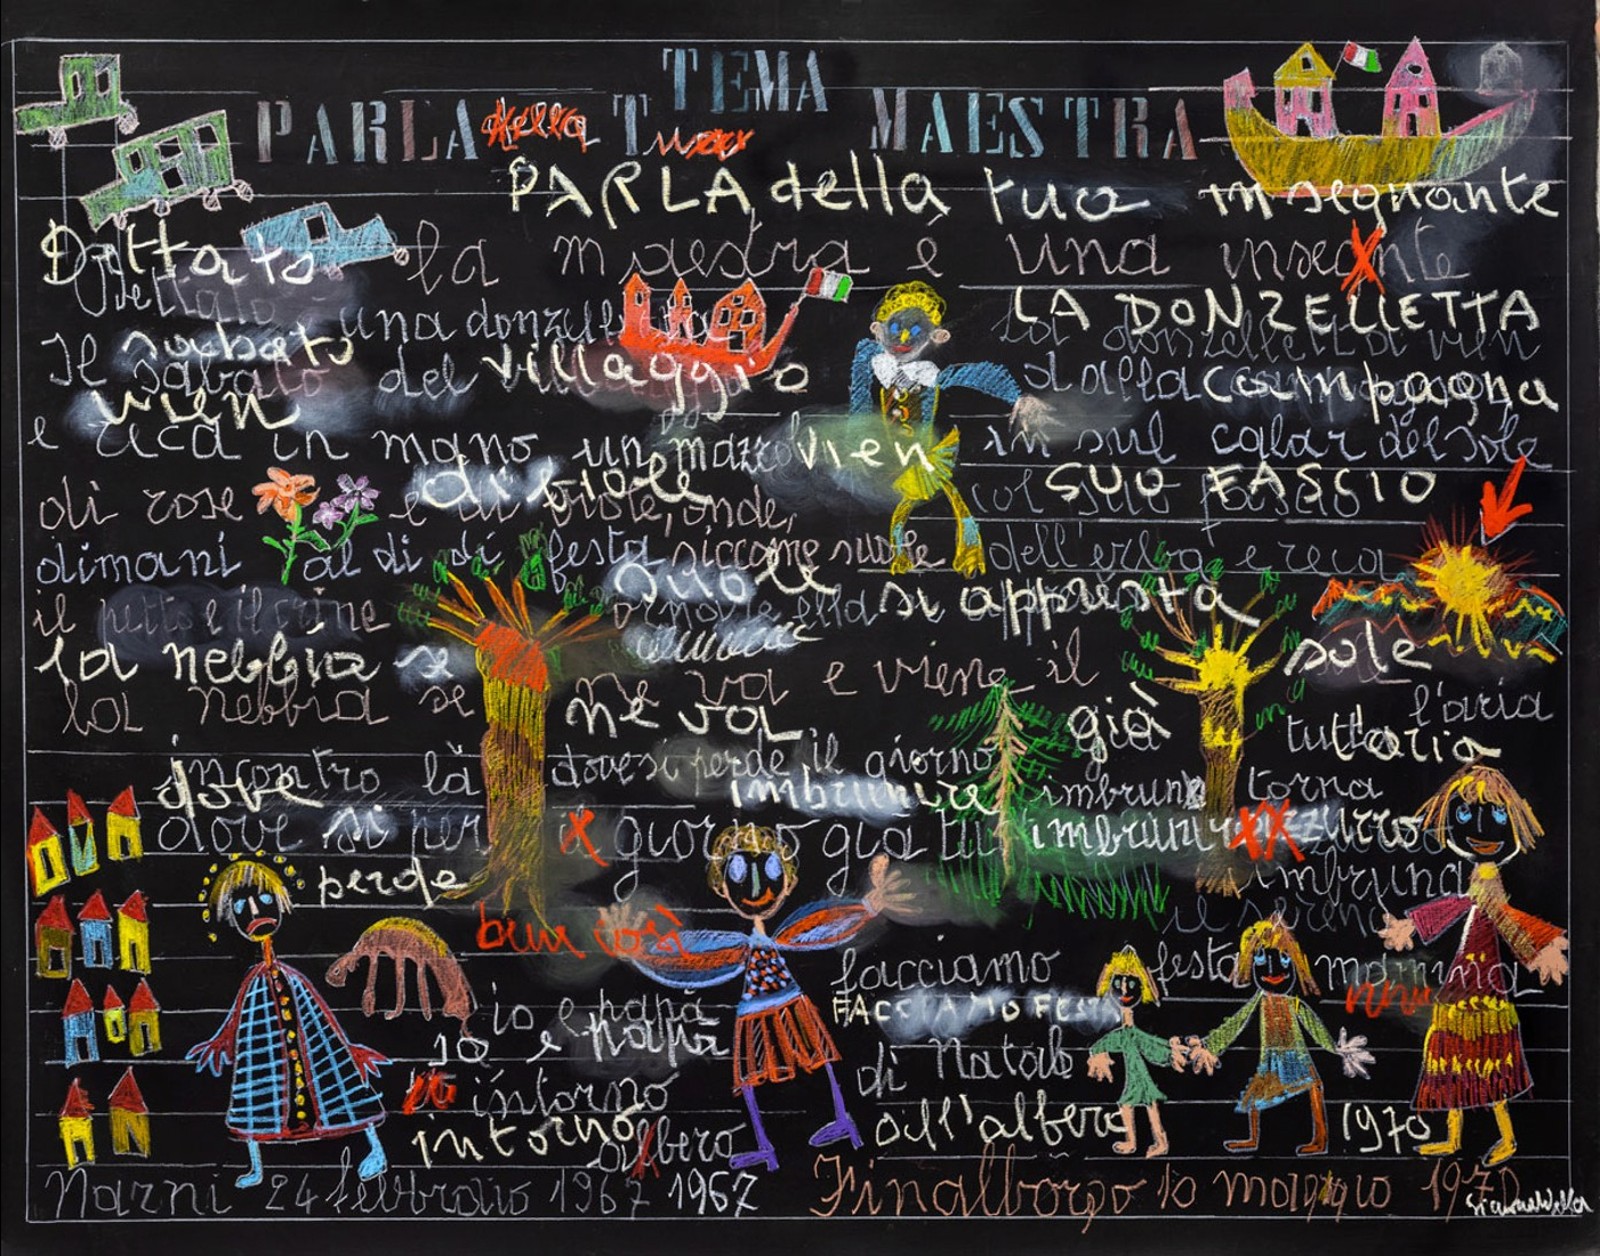 TEMA
PARLA della T MAESTRA
PARLA della tua insegnante
Dettato la maestra è una inse nte
una donzelle LA DONZELLETTA
la donzelletta vien
Il sabato
sabato del villaggio dalla campagna
vien
e reca in mano un mazzo vien in sul calar del sole
di viole SUO FASCIO
di rose e di viole, onde, col suo fascio
dimani al di di festa siccome suole dell'erba e reca
suole
il petto e il crine ornare ella si appresta
la nebbia se sole
la nebbia se ne va e viene il
ne va già l'aria
tuttaria
incontro là dove si perde il giorno
dove imbrunire imbruna torna
dove si per giorno già tu imbrunir azzurro
perde imbruna
e seren
ben così
facciamo festa mamma
FACCIAMO FESTA
io e papà
io e papà di Natale
intorno
intorno all'albero 1970
albero
Narni 24 febbraio 1967 1967 Finalborgo 10 maggio 1970